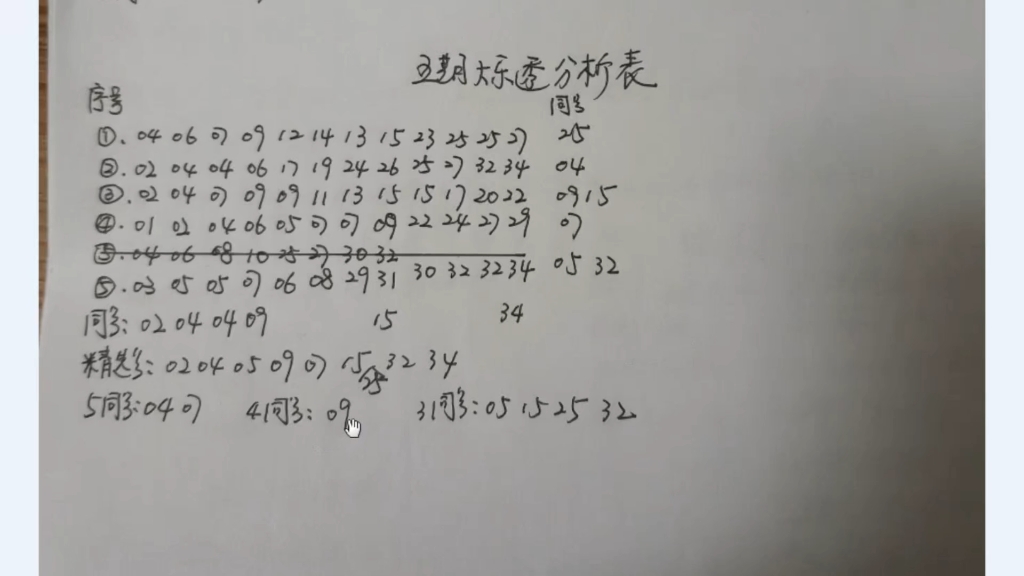 五期大乐透分析表
序号 同号
①. 04 06 07 09 12 14 13 15 23 25 25 27 25
②. 02 04 04 06 17 19 24 26 25 27 32 34 04
③. 02 04 07 09 09 11 13 15 15 17 20 22 09 15
④. 01 02 04 06 05 07 07 09 22 24 27 29 07
⑤. 04 06 08 10 25 27 30 32
⑤. 03 05 05 07 06 08 29 31 30 32 32 34 05 32
同号: 02 04 04 09 15 34
精选号: 02 04 05 09 07 15 25 32 34
5同号: 04 07 4同号: 09 3同号: 05 15 25 32